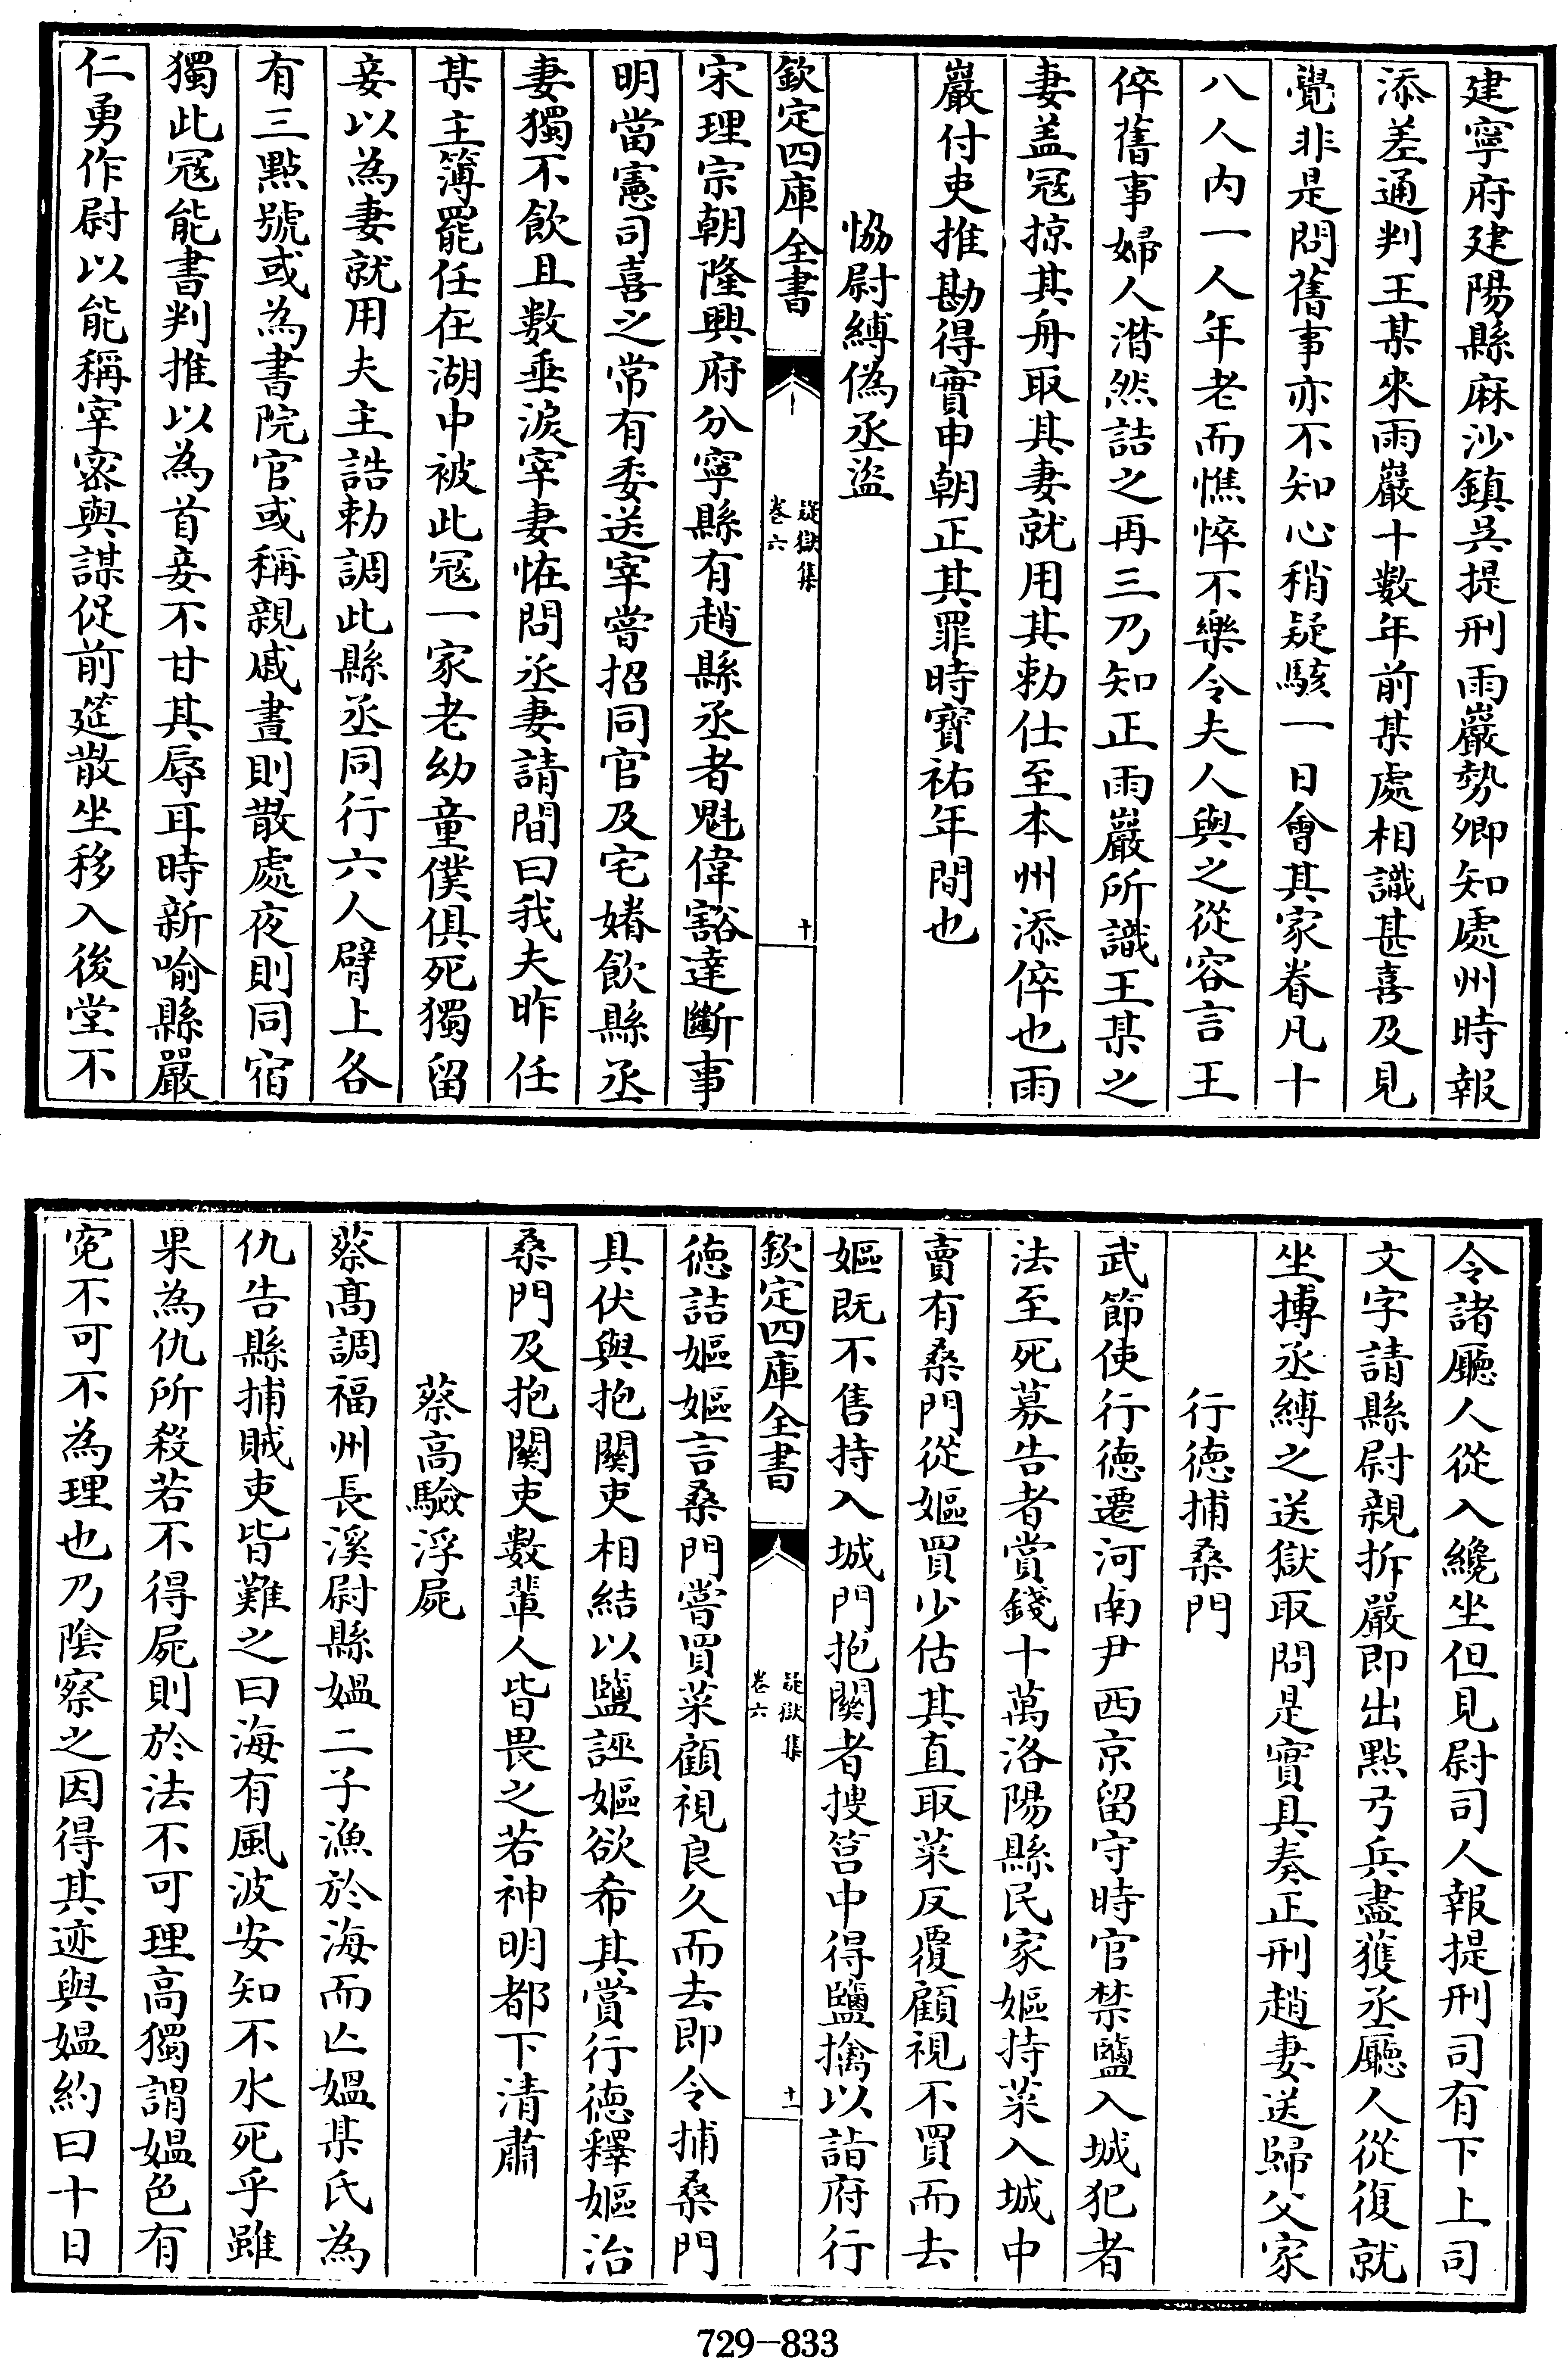 建寧府建陽縣麻沙鎮吳提刑雨巖勢卿知處州時報
添差通判王某來雨巖十數年前某處相識甚喜及見
覺非是問舊事亦不知心稍疑駭一日會其家眷凡十
八人內一人年老而憔悴不樂令夫人與之從容言王
倅舊事婦人潸然詰之再三乃知正雨巖所識王某之
妻盖冦掠其舟取其妻就用其勅仕至本州添倅也雨
巖付吏推勘得實申朝正其罪時寳祐年間也
恊尉縛偽丞盜
欽定四庫全書
疑獄集
卷六
十
宋理宗朝隆興府分寧縣有趙縣丞者魁偉豁達斷事
明當憲司喜之常有委送宰嘗招同官及宅媎飲縣丞
妻獨不飲且數垂淚宰妻恠問丞妻請間曰我夫昨任
某主簿罷任在湖中被此冦一家老幼童僕俱死獨留
妾以為妻就用夫主誥勅調此縣丞同行六人臂上各
有三點號或為書院官或稱親戚晝則散處夜則同宿
獨此冦能書判推以為首妾不甘其辱耳時新喻縣嚴
仁勇作尉以能稱宰宻與謀促前筵散坐移入後堂不
令諸廳人從入纔坐但見尉司人報提刑司有下上司
文字請縣尉親拆嚴即出點弓兵盡獲丞廳人從復就
坐搏丞縛之送獄取問是實具奏正刑趙妻送歸父家
行德捕桑門
武節使行德遷河南尹西京留守時官禁鹽入城犯者
法至死募告者賞錢十萬洛陽縣民家嫗持菜入城中
賣有桑門從嫗買少估其直取菜反覆顧視不買而去
嫗既不售持入城門抱關者搜筥中得鹽擒以詣府行
欽定四庫全書
疑獄集
卷六
十一
德詰嫗嫗言桑門嘗買菜顧視良久而去即令捕桑門
具伏與抱關吏相結以鹽誣嫗欲希其賞行德釋嫗治
桑門及抱關吏數輩人皆畏之若神明都下清肅
蔡高驗浮屍
蔡高調福州長溪尉縣媼二子漁於海而亾媼某氏為
仇告縣捕賊吏皆難之曰海有風波安知不水死乎雖
果為仇所殺若不得屍則於法不可理高獨謂媼色有
寃不可不為理也乃陰察之因得其迹與媼約曰十日
729-833